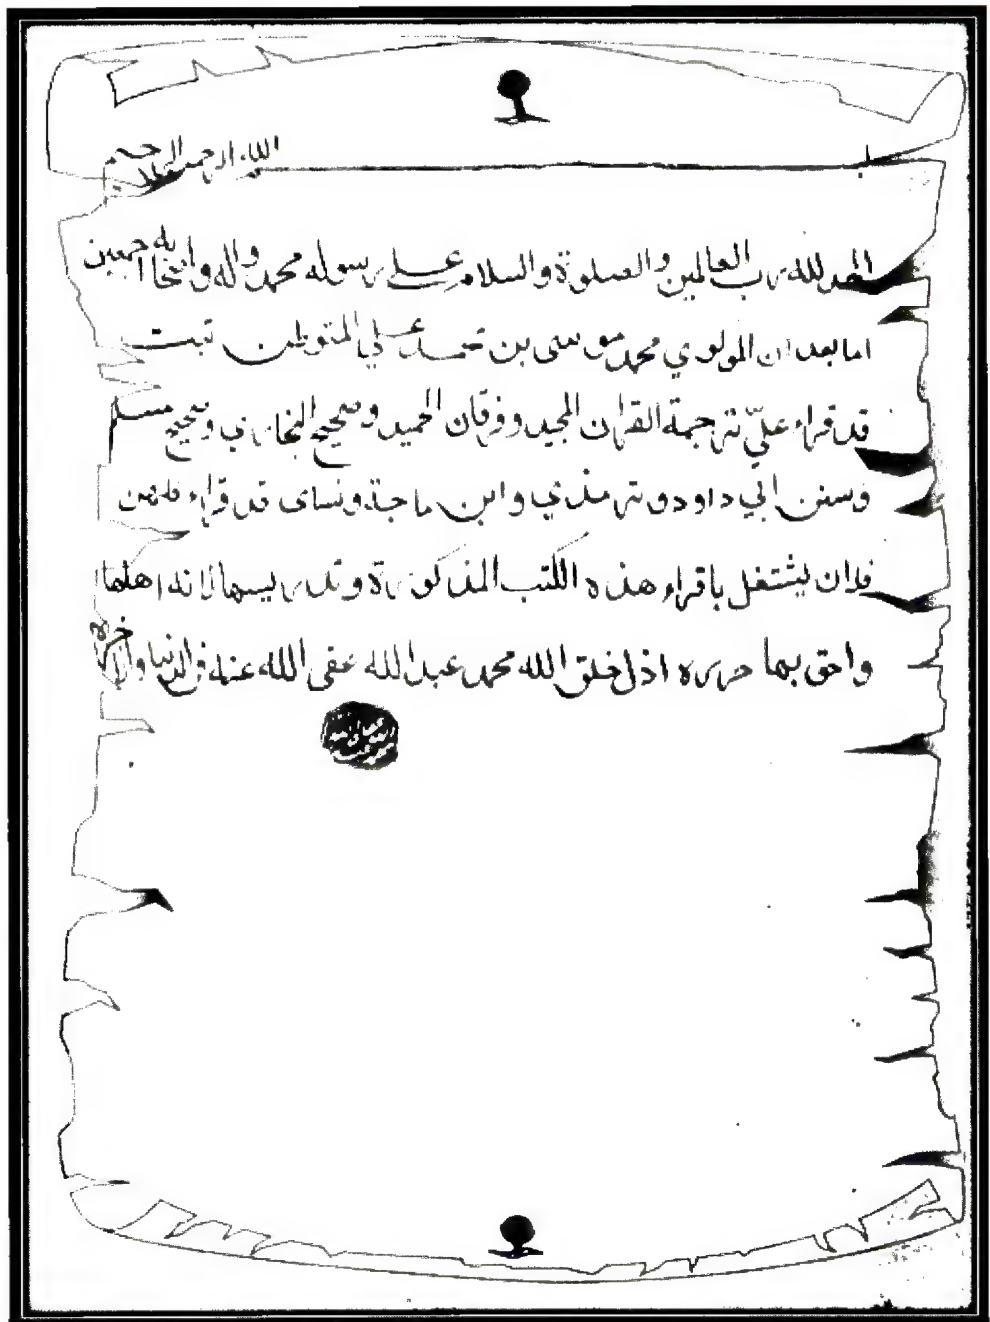 بسم الله الرحمن الرحيم
الحمد لله رب العالمين والصلوة والسلام علی رسوله محمد واله واصحابه اجمعين
اما بعد ان المولوي محمد موسی بن محمد علي المتوطن تبت
قد قراء عليّ ترجمة القران المجيد وفرقان الحميد وصحيح البخاري وصحيح مسلم
وسنن ابي داود وترمذي وابن ماجة ونسای قد قراء
فلان يشتغل باقراء هذه الكتب المذكورة وتدريسها لانه اهلها
واحق بها حرره اذل خلق الله محمد عبد الله عفی الله عنه في الدنيا والاخره